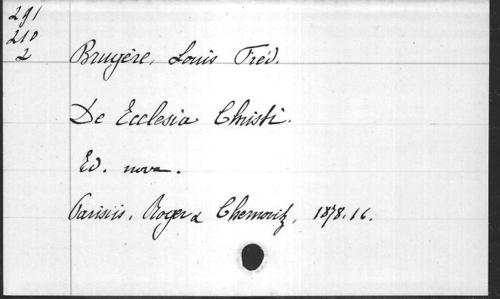 291
210
2
Brugère, Louis Fréd.
De Ecclesia Christi.
Ed. nova.
Parisiis, Roger & Chernovitz, 1878. 16.